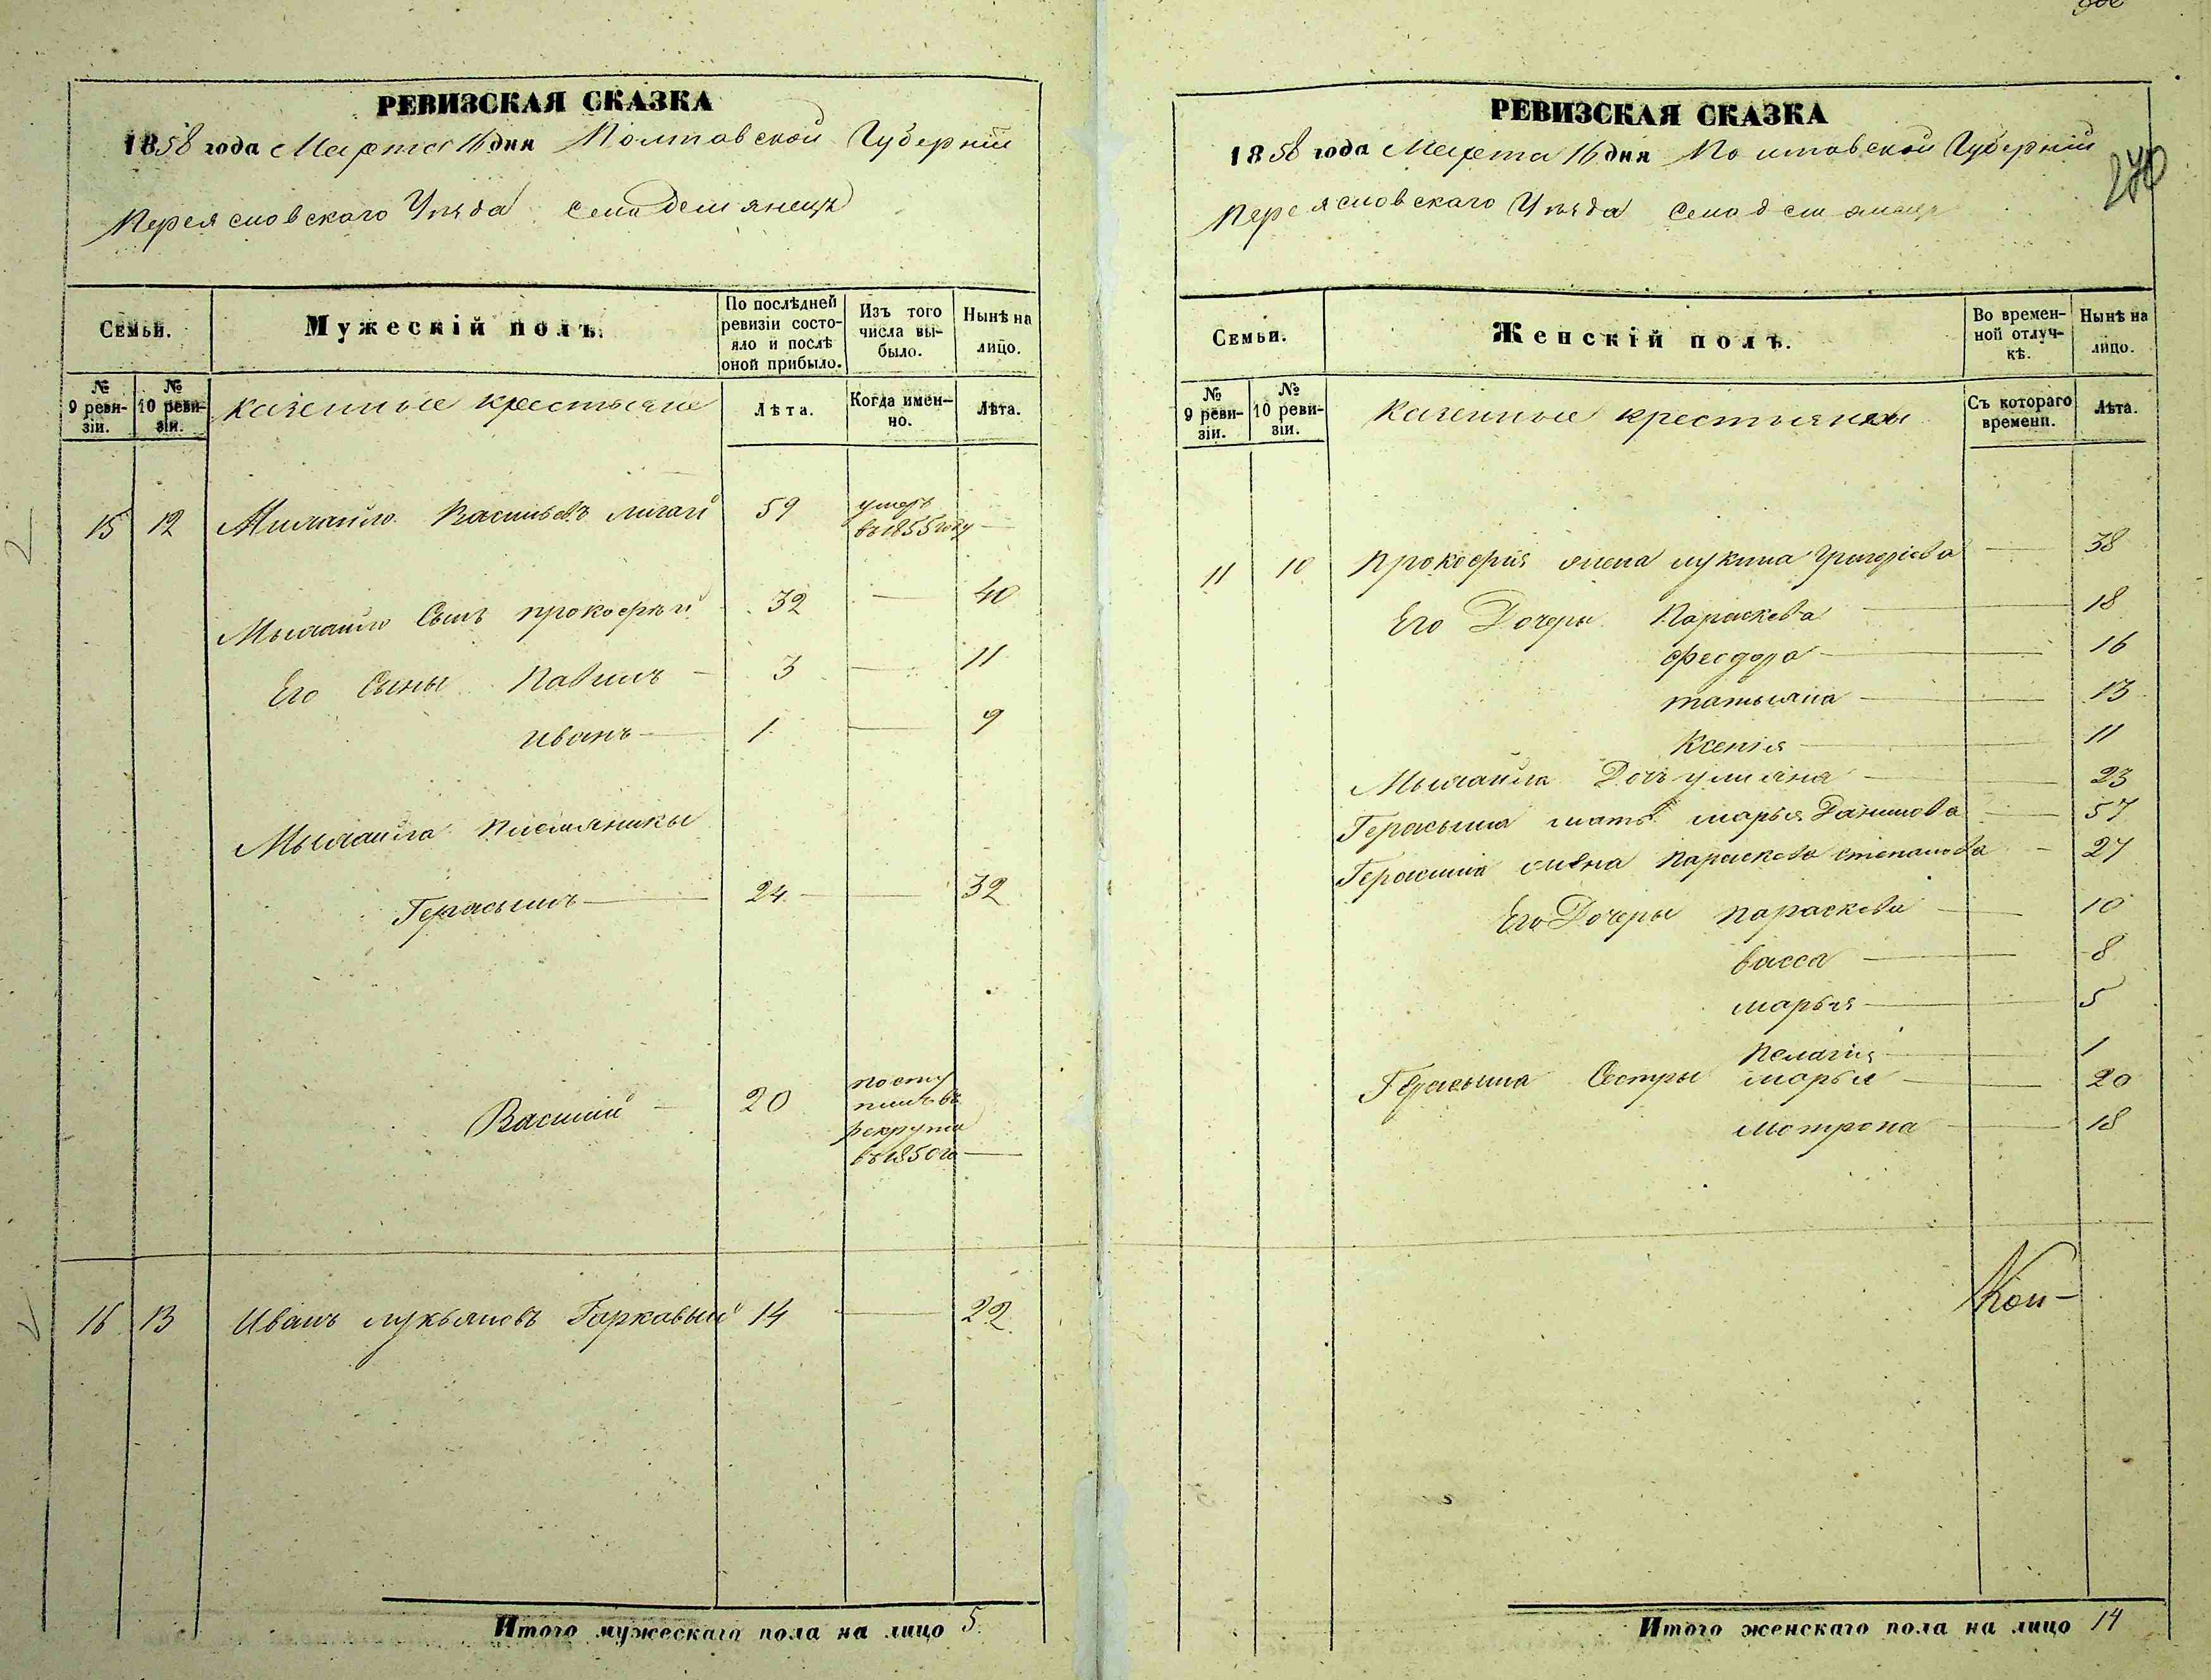 РЕВИЗСКАЯ СКАЗКА
1858 года Марта 16 дня Полтавской Губернiи
Переясловскаго Уѣзда Село Демянецъ
Семьи.
Мужескій полъ.
По послѣдней ревизіи состояло и послѣ оной прибыло.
Изъ того числа выбыло.
Нынѣ на лицо.
№ 9 ревизіи.
№ 10 ревизіи.
казенные крестьяне
Лѣта.
Когда именно.
Лѣта.
15 12 Михайло Васильевъ 59 умеръ
въ 1855 году —
Михайло Сынъ прокофѣй 32 — 40
Его Сыны Павилъ — 3 — 11
иванъ — 1 — 9
Михайла племяники
Герасымъ — 24 — 32
Василий — 20 посту
пилъ въ
рекрута
въ 1850 го —
16 13 Иванъ лукьяновъ Гаркавый 14 — 22
Итого мужескаго пола на лицо 5
РЕВИЗСКАЯ СКАЗКА
1858 года Марта 16 дня Полтавской Губернiи
Переясловскаго Уѣзда Село демянецъ
270
Семьи.
Женскій полъ.
Во временной отлучкѣ.
Нынѣ на лицо.
№ 9 ревизіи.
№ 10 ревизіи.
казенные крестьянки
Съ котораго времени.
Лѣта.
11 10 Прокофия жена лукина Григорiева — 38
Его Дочеры Параскева — 18
феодора — 16
татьяна — 13
Ксенiя — 11
Михайла Дочъ улияна — 23
Герасыма мать марья Данилова — 57
Герасима жена Параскева степанова — 27
Его Дочеры параскева — 10
васса — 8
марья — 5
Пелагия — 1
Герасыма Сестры марья — 20
мотрона — 18
Итого женскаго пола на лицо 14